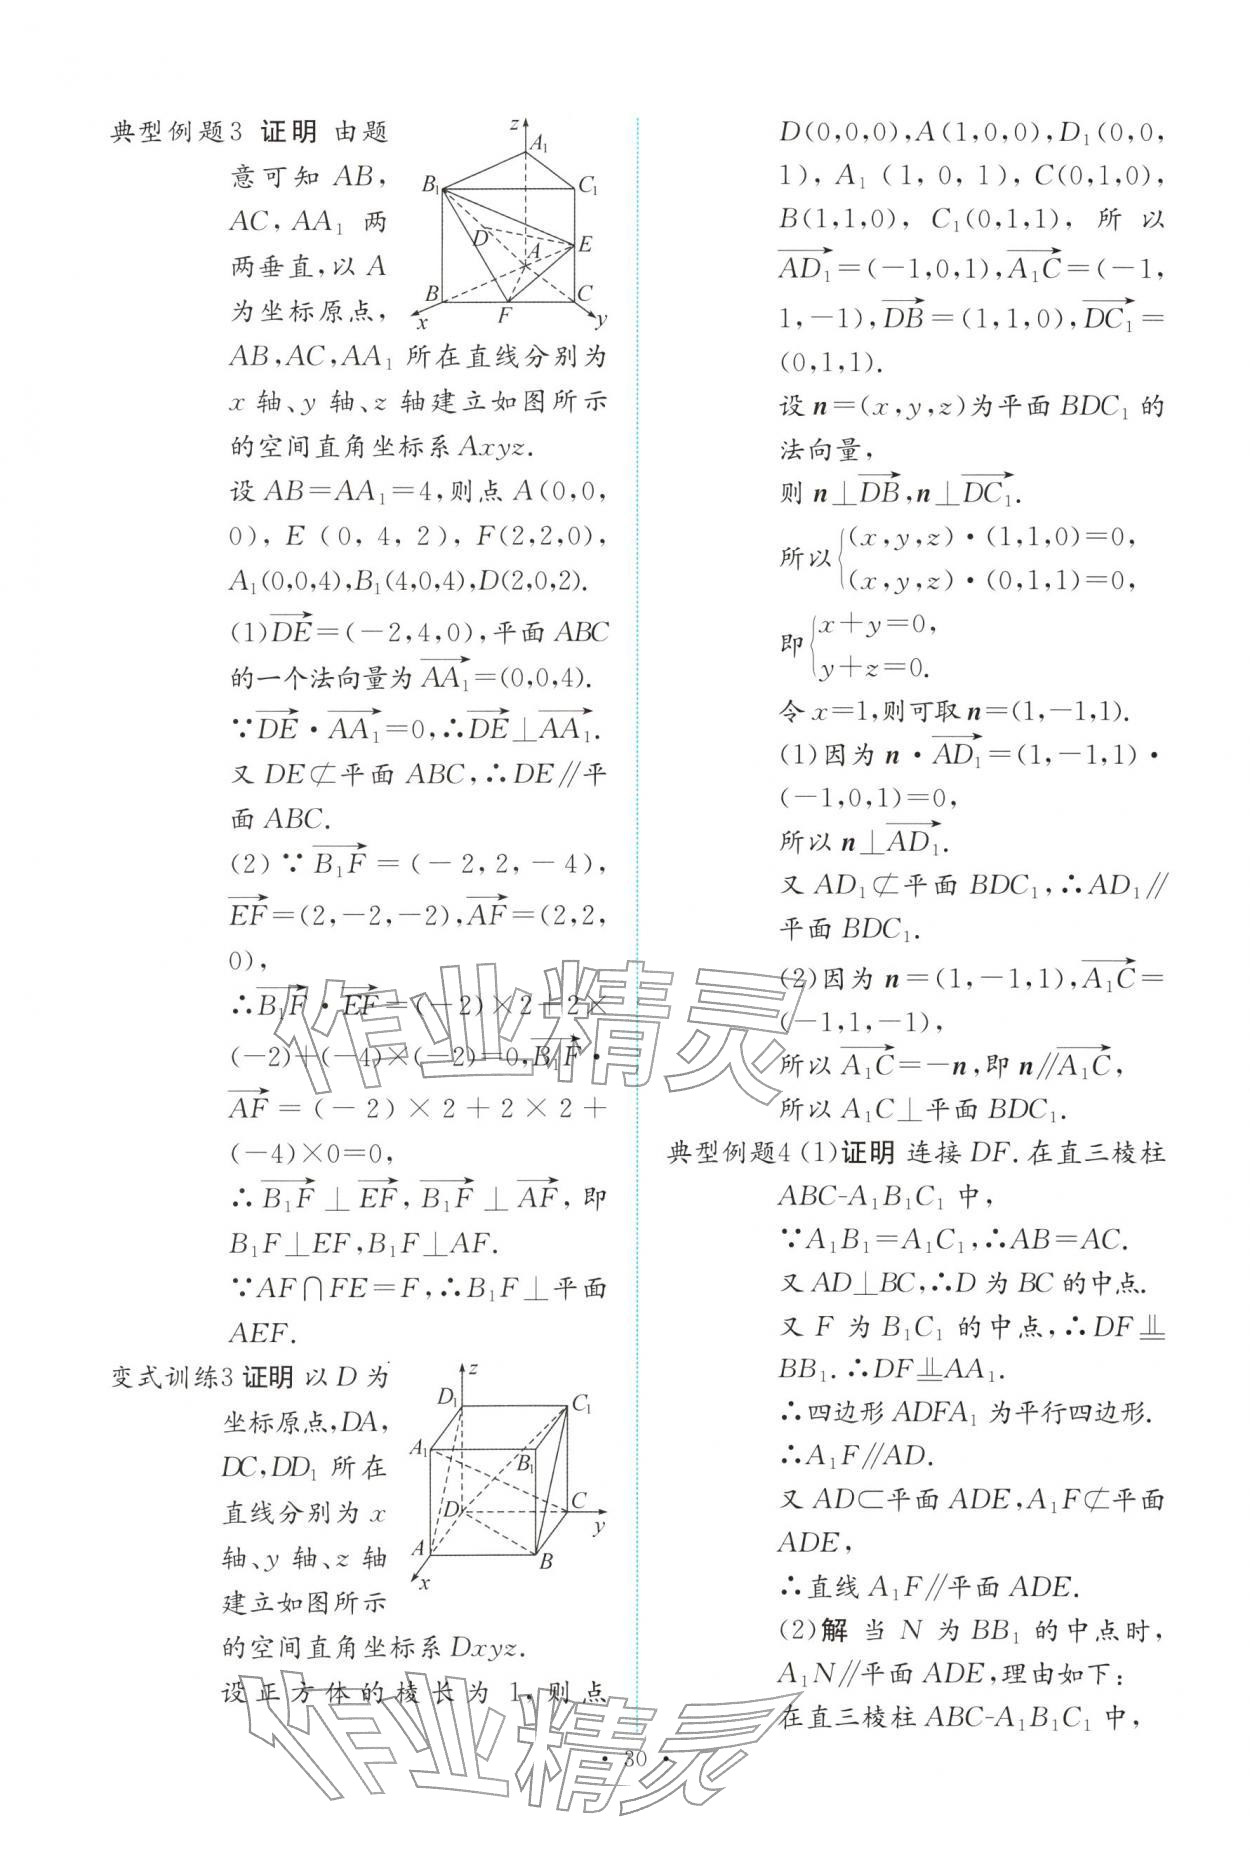 典型例题3 证明 由题
意可知 AB,
AC, AA₁ 两
两垂直,以 A
为坐标原点,
AB,AC,AA₁ 所在直线分别为
x 轴、y 轴、z 轴建立如图所示
的空间直角坐标系 Axyz.
z
A₁
B₁
C₁
D
A
E
B
F
C
x
y
设 AB=AA₁=4,则点 A(0,0,
0), E (0, 4, 2), F(2,2,0),
A₁(0,0,4),B₁(4,0,4),D(2,0,2).
(1)\overrightarrow{DE}=(-2,4,0),平面 ABC
的一个法向量为 \overrightarrow{AA₁}=(0,0,4).
∵\overrightarrow{DE}·\overrightarrow{AA₁}=0,∴\overrightarrow{DE}⊥\overrightarrow{AA₁}.
又 DE⊄平面 ABC,∴DE∥平
面 ABC.
(2)∵\overrightarrow{B₁F}=(-2,2,-4),
\overrightarrow{EF}=(2,-2,-2),\overrightarrow{AF}=(2,2,
0),
∴\overrightarrow{B₁F}·\overrightarrow{EF}=(-2)×2+2×
(-2)+(-4)×(-2)=0,\overrightarrow{B₁F}·
\overrightarrow{AF}=(-2)×2+2×2+
(-4)×0=0,
∴\overrightarrow{B₁F}⊥\overrightarrow{EF},\overrightarrow{B₁F}⊥\overrightarrow{AF},即
B₁F⊥EF,B₁F⊥AF.
∵AF∩FE=F,∴B₁F⊥平面
AEF.
变式训练3 证明 以 D 为
坐标原点,DA,
DC,DD₁ 所在
直线分别为 x
轴、y 轴、z 轴
建立如图所示
的空间直角坐标系 Dxyz.
z
D₁
C₁
A₁
B₁
D
C
y
A
B
x
设正方体的棱长为 1,则点
D(0,0,0),A(1,0,0),D₁(0,0,
1), A₁ (1, 0, 1), C(0,1,0),
B(1,1,0), C₁(0,1,1), 所以
\overrightarrow{AD₁}=(-1,0,1),\overrightarrow{A₁C}=(-1,
1,-1),\overrightarrow{DB}=(1,1,0),\overrightarrow{DC₁}=
(0,1,1).
设 n=(x,y,z)为平面 BDC₁ 的
法向量,
则 n⊥\overrightarrow{DB},n⊥\overrightarrow{DC₁}.
所以{(x,y,z)·(1,1,0)=0,
(x,y,z)·(0,1,1)=0,
即{x+y=0,
y+z=0.
令 x=1,则可取 n=(1,-1,1).
(1)因为 n·\overrightarrow{AD₁}=(1,-1,1)·
(-1,0,1)=0,
所以 n⊥\overrightarrow{AD₁}.
又 AD₁⊄平面 BDC₁,∴AD₁∥
平面 BDC₁.
(2)因为 n=(1,-1,1),\overrightarrow{A₁C}=
(-1,1,-1),
所以 \overrightarrow{A₁C}=-n,即 n∥\overrightarrow{A₁C},
所以 A₁C⊥平面 BDC₁.
典型例题4 (1)证明 连接 DF.在直三棱柱
ABC-A₁B₁C₁ 中,
∵A₁B₁=A₁C₁,∴AB=AC.
又 AD⊥BC,∴D 为 BC 的中点.
又 F 为 B₁C₁ 的中点,∴DF⊥⊥
BB₁.∴DF⊥⊥AA₁.
∴四边形 ADFA₁ 为平行四边形.
∴A₁F∥AD.
又 AD⊂平面 ADE,A₁F⊄平面
ADE,
∴直线 A₁F∥平面 ADE.
(2)解 当 N 为 BB₁ 的中点时,
A₁N∥平面 ADE,理由如下:
在直三棱柱 ABC-A₁B₁C₁ 中,
·30·
作业精灵
作业精灵